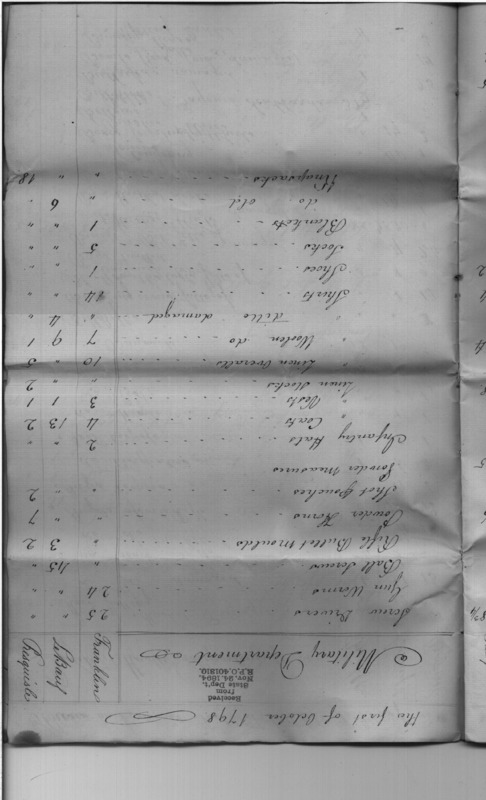 The first of October 1798
Received
from
State Dep't.
Nov. 24. 1894.
R.P.O. 401810.
Military Department
Franklin
LeBeuf
Presquisle
Screw Drivers 25 " "
Gun Worms 24 " "
Ball Screws " 45 "
Rifle Bullet Moulds " 3 2
Powder Horns " " 7
Shot Pouches " " 2
Powder Measures
Infantry Hats 2 " "
" Coats 4 13 2
" Vests 3 1 1
Linen Stocks " " 2
" Linen Overalls 10 " 5
" Woolen do 7 9 1
" ditto damaged " 4 "
Shirts 14 " "
Shoes 1 " "
Socks 5 " "
Blankets 1 " "
do old " 6 "
Knapsacks " " 18